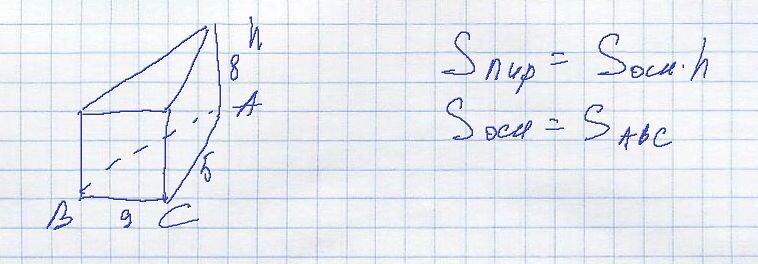 h
8
A
5
B 9 C
Sпир = Sосн·h
Sосн = SABC